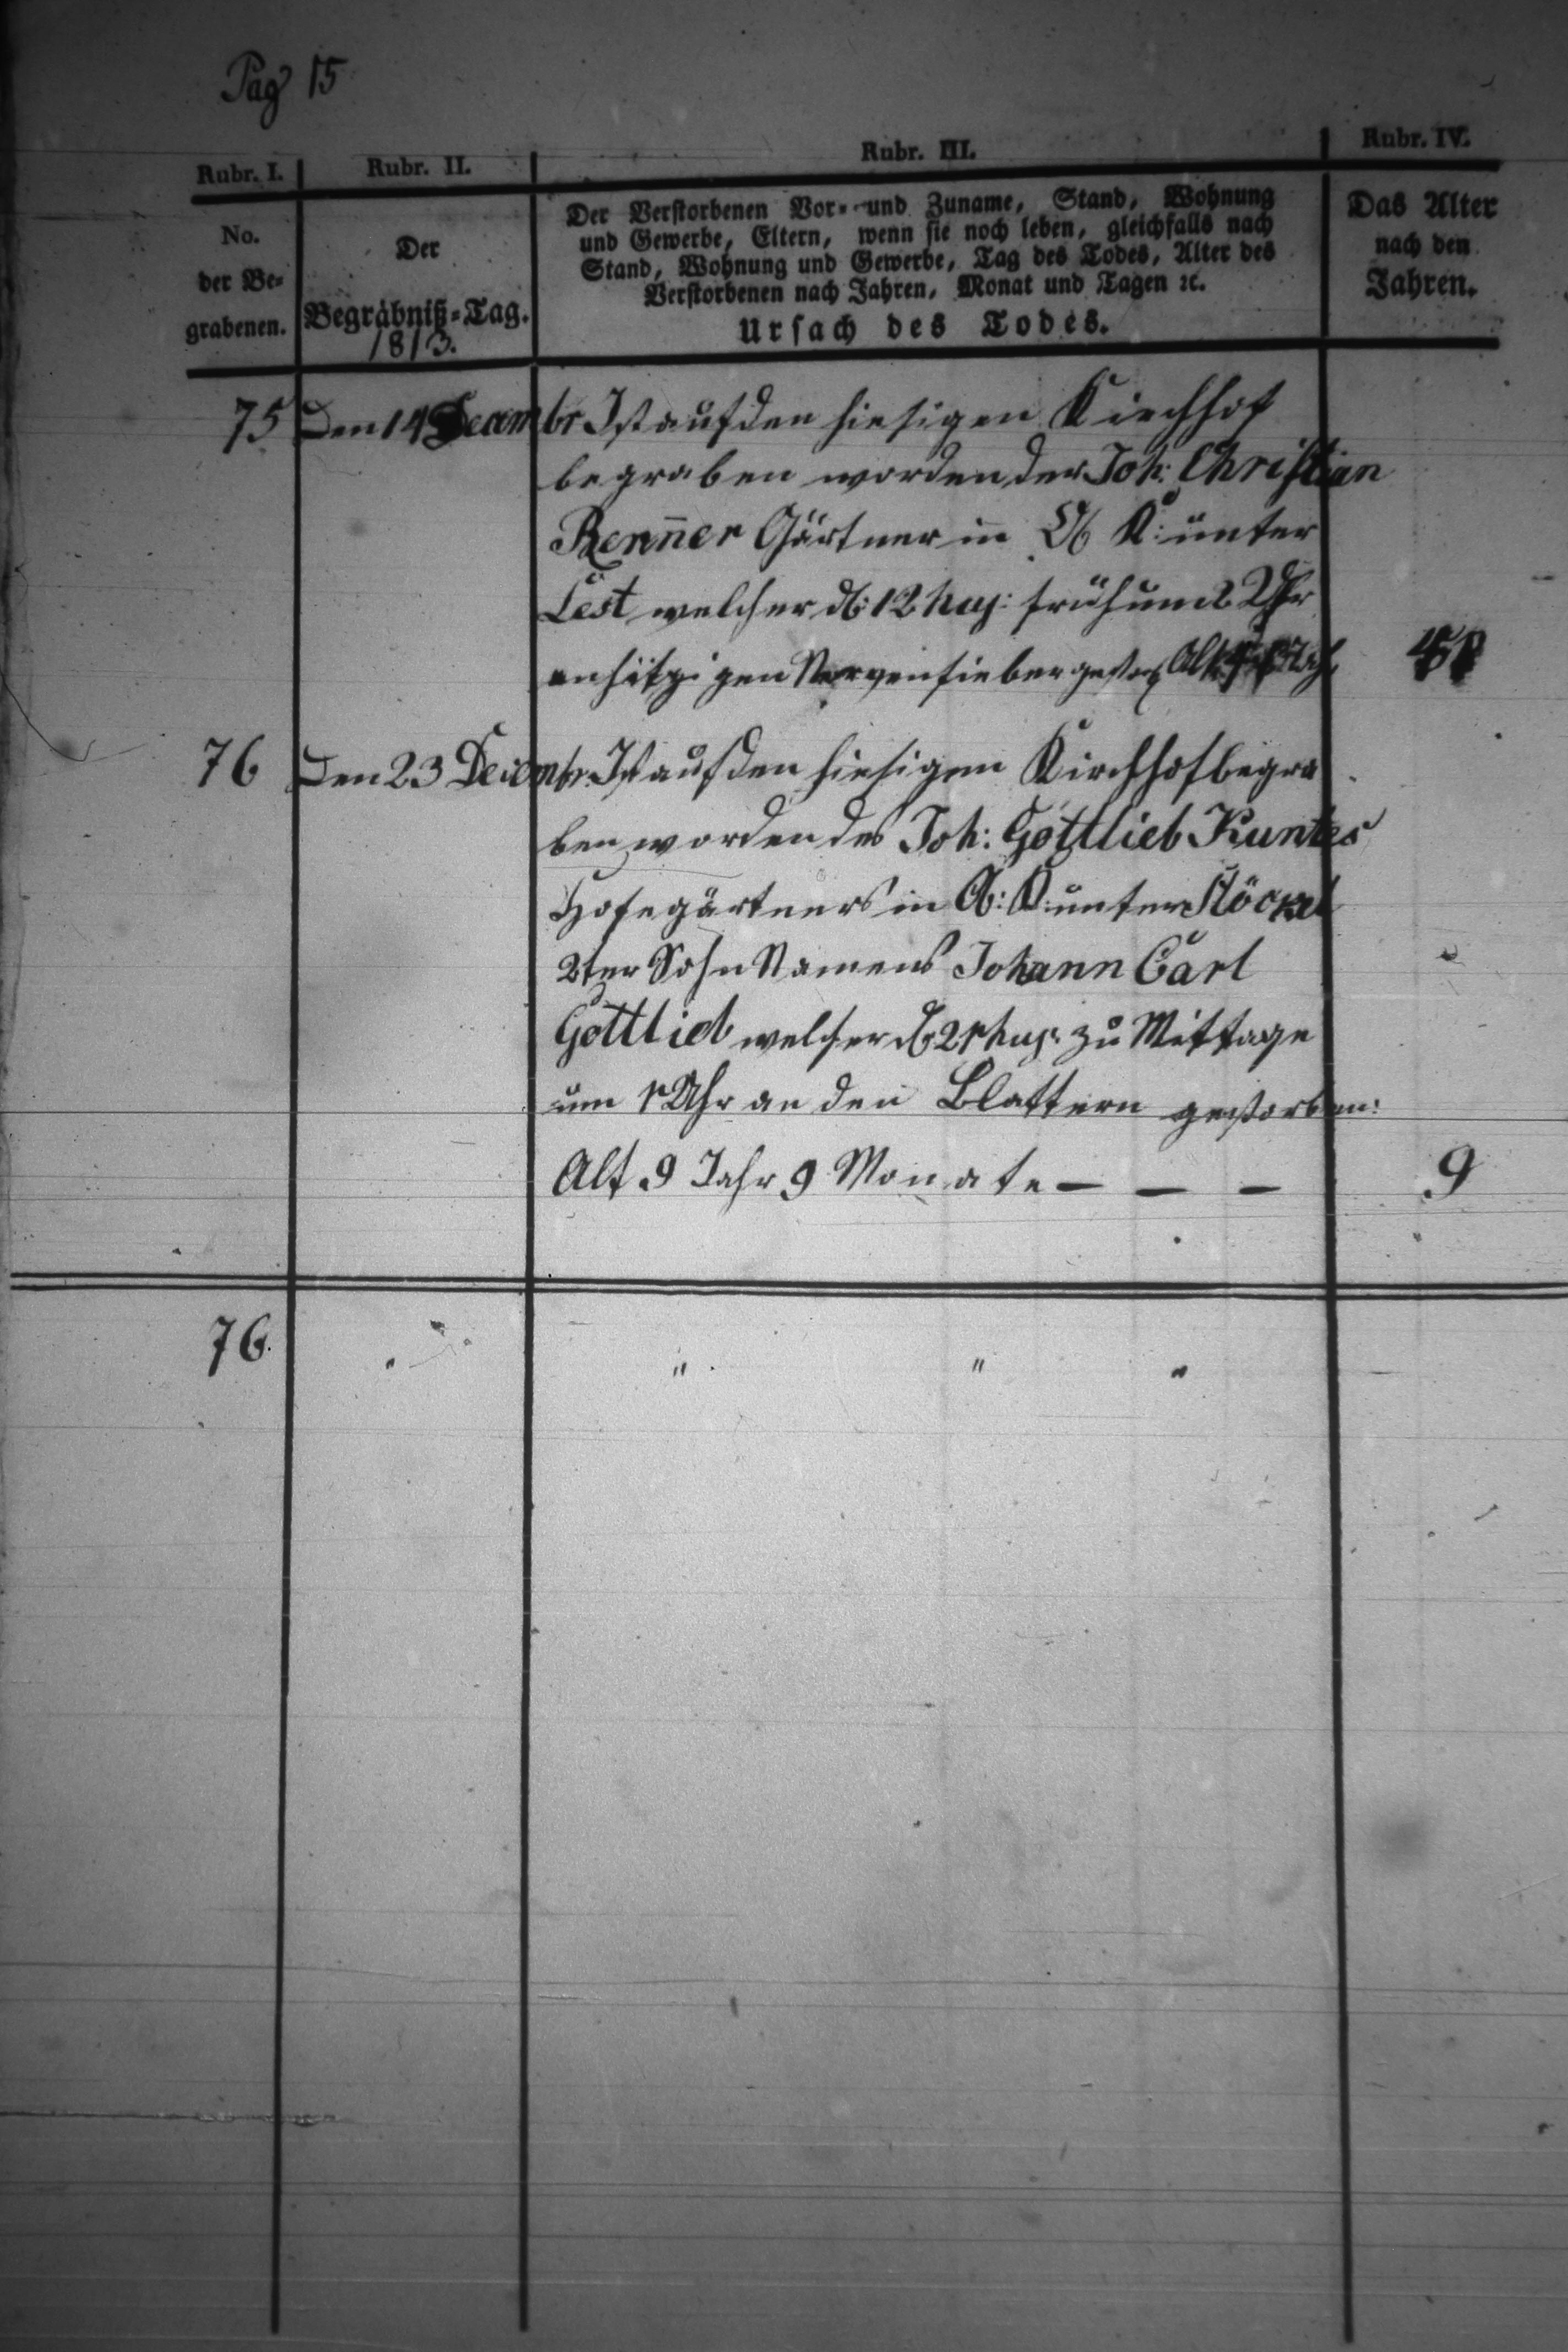 Pag 15
Rubr. I. Rubr. II. Rubr. III. Rubr. IV.
No.
der Be-
grabenen.
Der
Begräbniß-Tag.
1813.
Der Verstorbenen Vor- und Zuname, Stand, Wohnung
und Gewerbe, Eltern, wenn sie noch leben, gleichfalls nach
Stand, Wohnung und Gewerbe, Tag des Todes, Alter des
Verstorbenen nach Jahren, Monat und Tagen ꝛc.
Ursach des Todes.
Das Alter
nach den
Jahren.
75 Den 14 Decembr Ist auf den hiesigen Kirchhof
begraben worden der Joh: Christian
Renner Gärtner in K: unter
Lest welcher d: 12 huj: früh um 2 Uhr
an hitzigen Nervenfieber gestorb Alt
76 Den 23 Decembr. Ist auf den hiesigen Kirchhof begra
ben worden des Joh: Gottlieb Kuntes
Hofegärtners in K: unter Stöckel
2ter Sohn Namens Johann Carl
Gottlieb welcher d 21 huj: zu Mittage
um 1 Uhr an den Blattern gestorben:
Alt 9 Jahr 9 Monate — — — 9
76. " " "